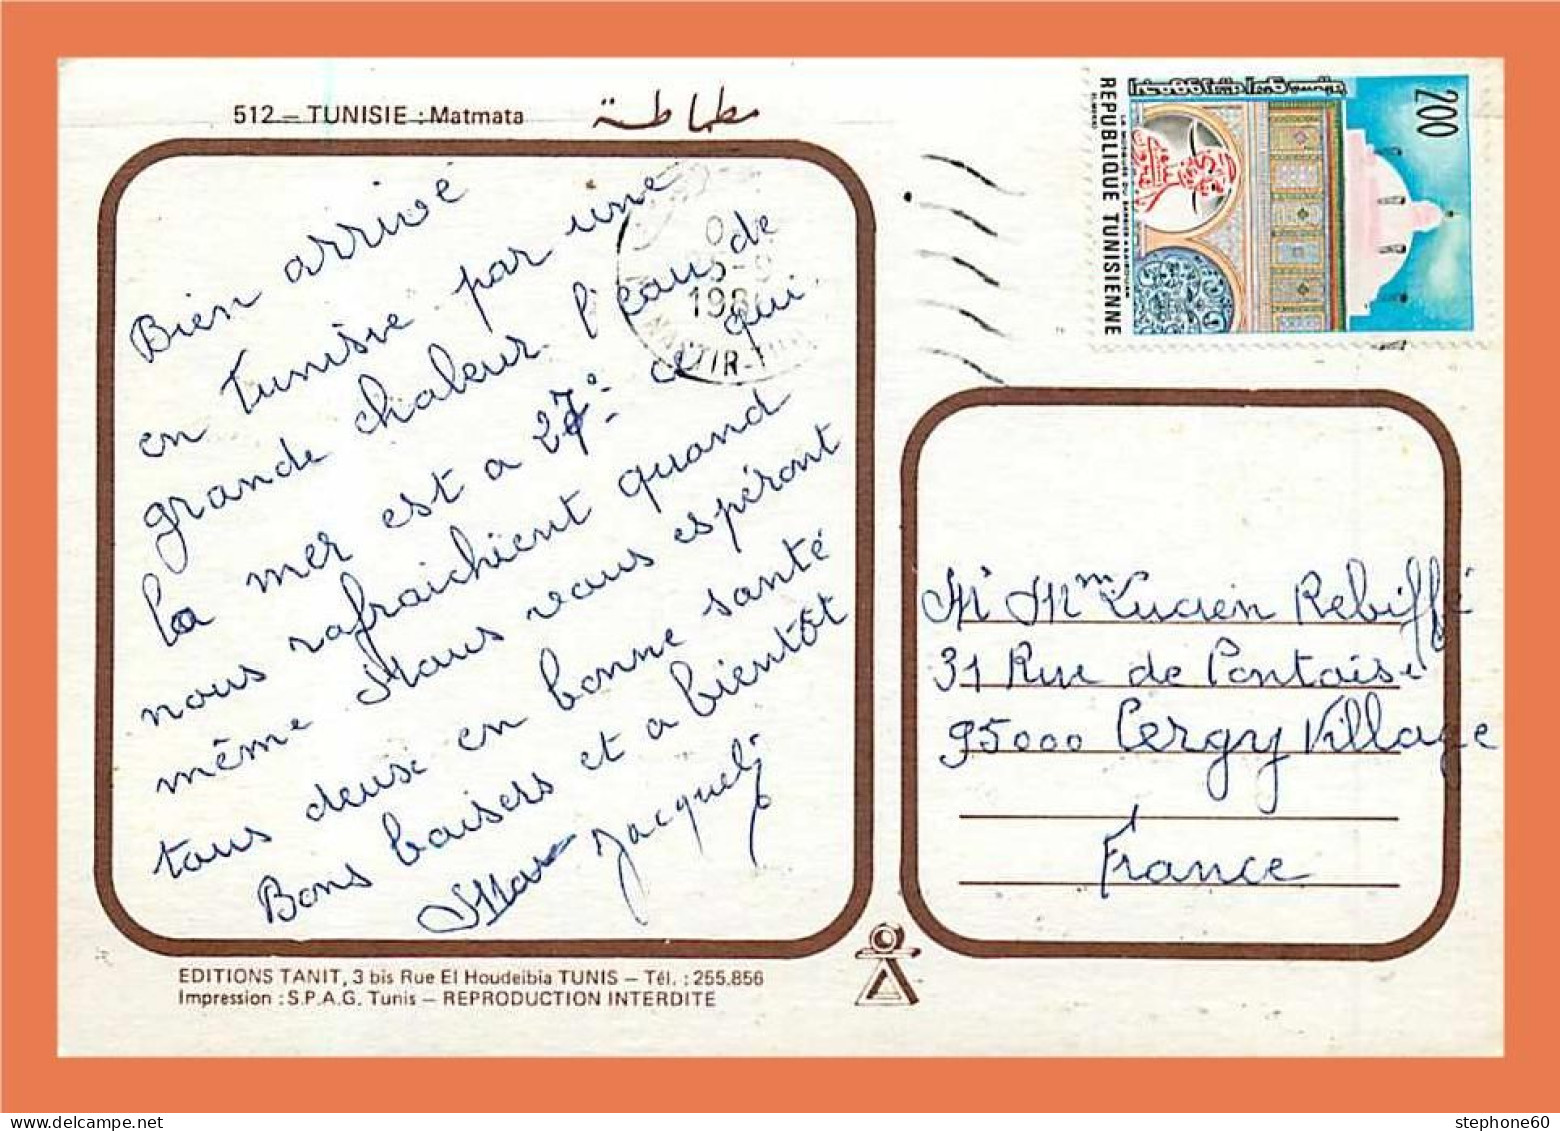 512 – TUNISIE : Matmata مطماطة
Bien arrivé
en Tunisie par une
grande chaleur l'eau de
la mer est a 27° ce qui
nous rafraichient quand
même Nous vous espéront
tous deux en bonne santé
Bons baisers et a bientôt
Marc Jacquel
EDITIONS TANIT, 3 bis Rue El Houdeibia TUNIS – Tél. : 255.856
Impression : S.P.A.G. Tunis – REPRODUCTION INTERDITE
200
REPUBLIQUE TUNISIENNE
198
Mr Mme Lucien Rebiffé
31 Rue de Pontoise
95000 Cergy Village
France
stephone60